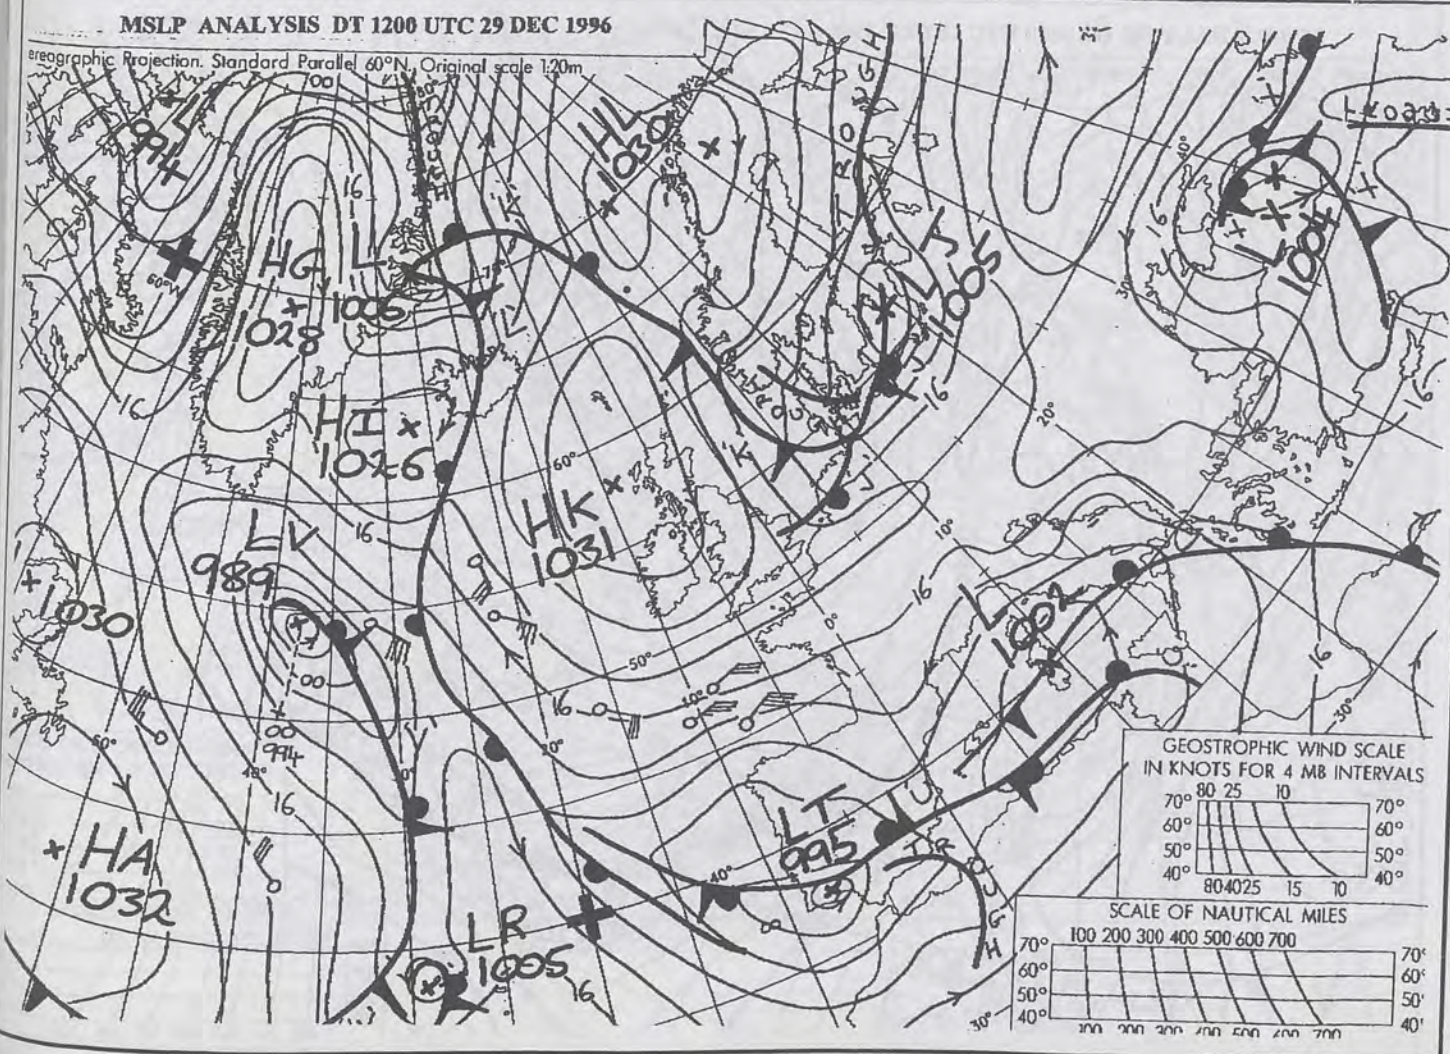 MSLP ANALYSIS DT 1200 UTC 29 DEC 1996
ereographic Projection. Standard Parallel 60°N, Original scale 1:20m
L
994
00
80°
HL
1030
TROUGH
40°
16
HG
1028
L
1006
16
60°W
70°
LJ
1005
16
L
1004
30°
16
HI
1026
16
20°
60°
HK
1031
16
10°
LV
989
1030
00
00
994
50°
16
0°
16
L
1002
16
10°
20°
60°
40°
16
HA
1032
LT
995
TROUGH
40°
00
LR
1005
16
30°
30°
GEOSTROPHIC WIND SCALE
IN KNOTS FOR 4 MB INTERVALS
80 25 10
70° 70°
60° 60°
50° 50°
40° 40°
80 40 25 15 10
SCALE OF NAUTICAL MILES
100 200 300 400 500 600 700
70° 70°
60° 60°
50° 50°
40° 40°
100 200 300 400 500 600 700